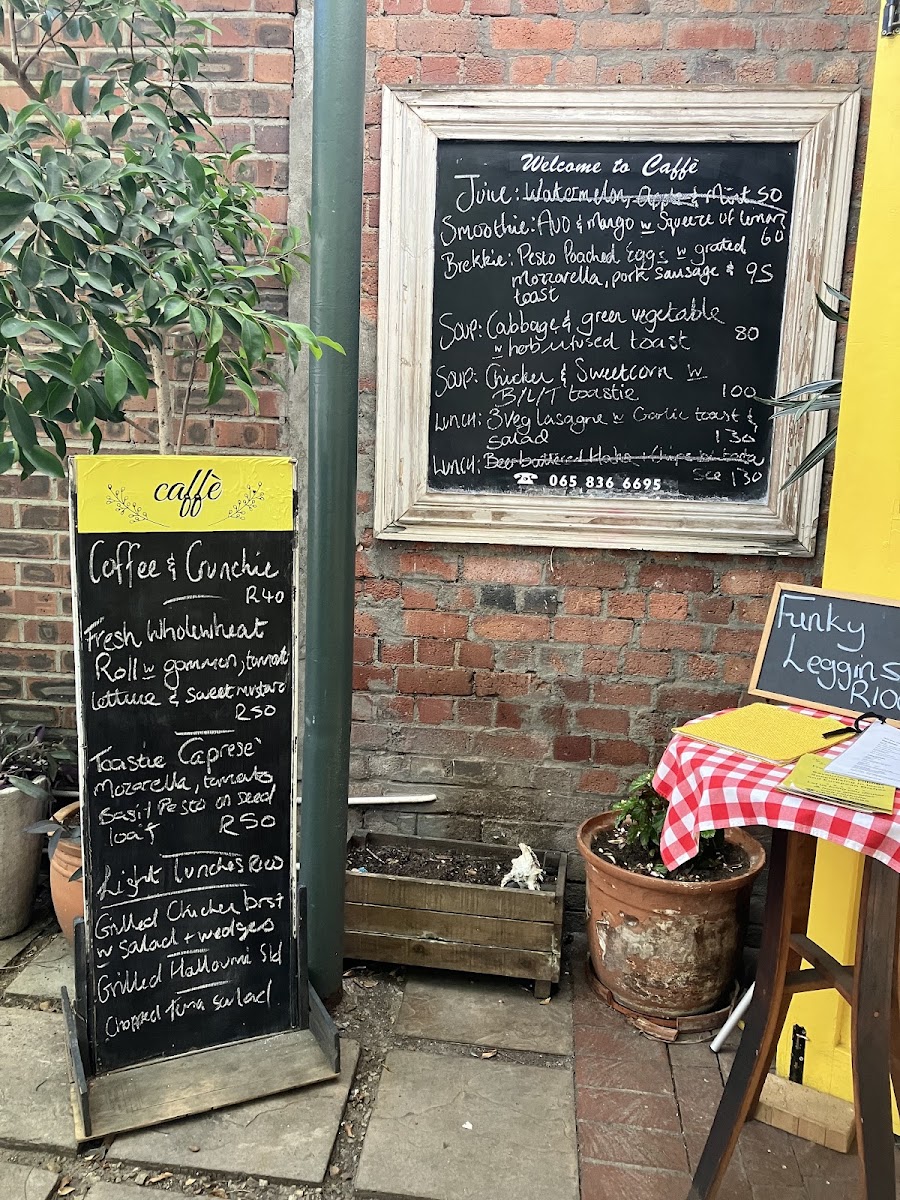 Welcome to Caffè
Juice: Watermelon, Apple & Mint 50
Smoothie: Avo & Mango w Squeeze of lemon
60
Brekkie: Pesto Poached Eggs w grated
mozzarella, pork sausage & 95
toast
Soup: Cabbage & green vegetable
w herb infused toast 80
Soup: Chicken & Sweetcorn w
B/L/T toastie 100
Lunch: 3 Veg lasagne w Garlic toast &
salad 130
Lunch: Beer battered Hake + Chips
130
☎ 065 836 6695
caffè
Coffee & Crunchie
R40
Fresh Wholewheat
Roll w gammon, tomato
lettuce & sweet mustard
R50
Toastie Caprese'
Mozarella, tomato
Basil Pesto on seed
loaf R50
Light Lunches R100
Grilled Chicken brst
w salad + wedges
Grilled Halloumi Sld
Chopped Tuna salad
Funky
Leggins
R100